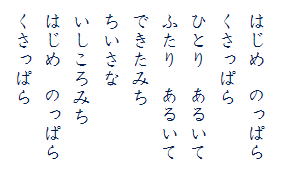 はじめ　のっぱら
くさっぱら
ひとり　あるいて
ふたり　あるいて
できたみち
ちいさな
いしころみち
はじめ　のっぱら
くさっぱら